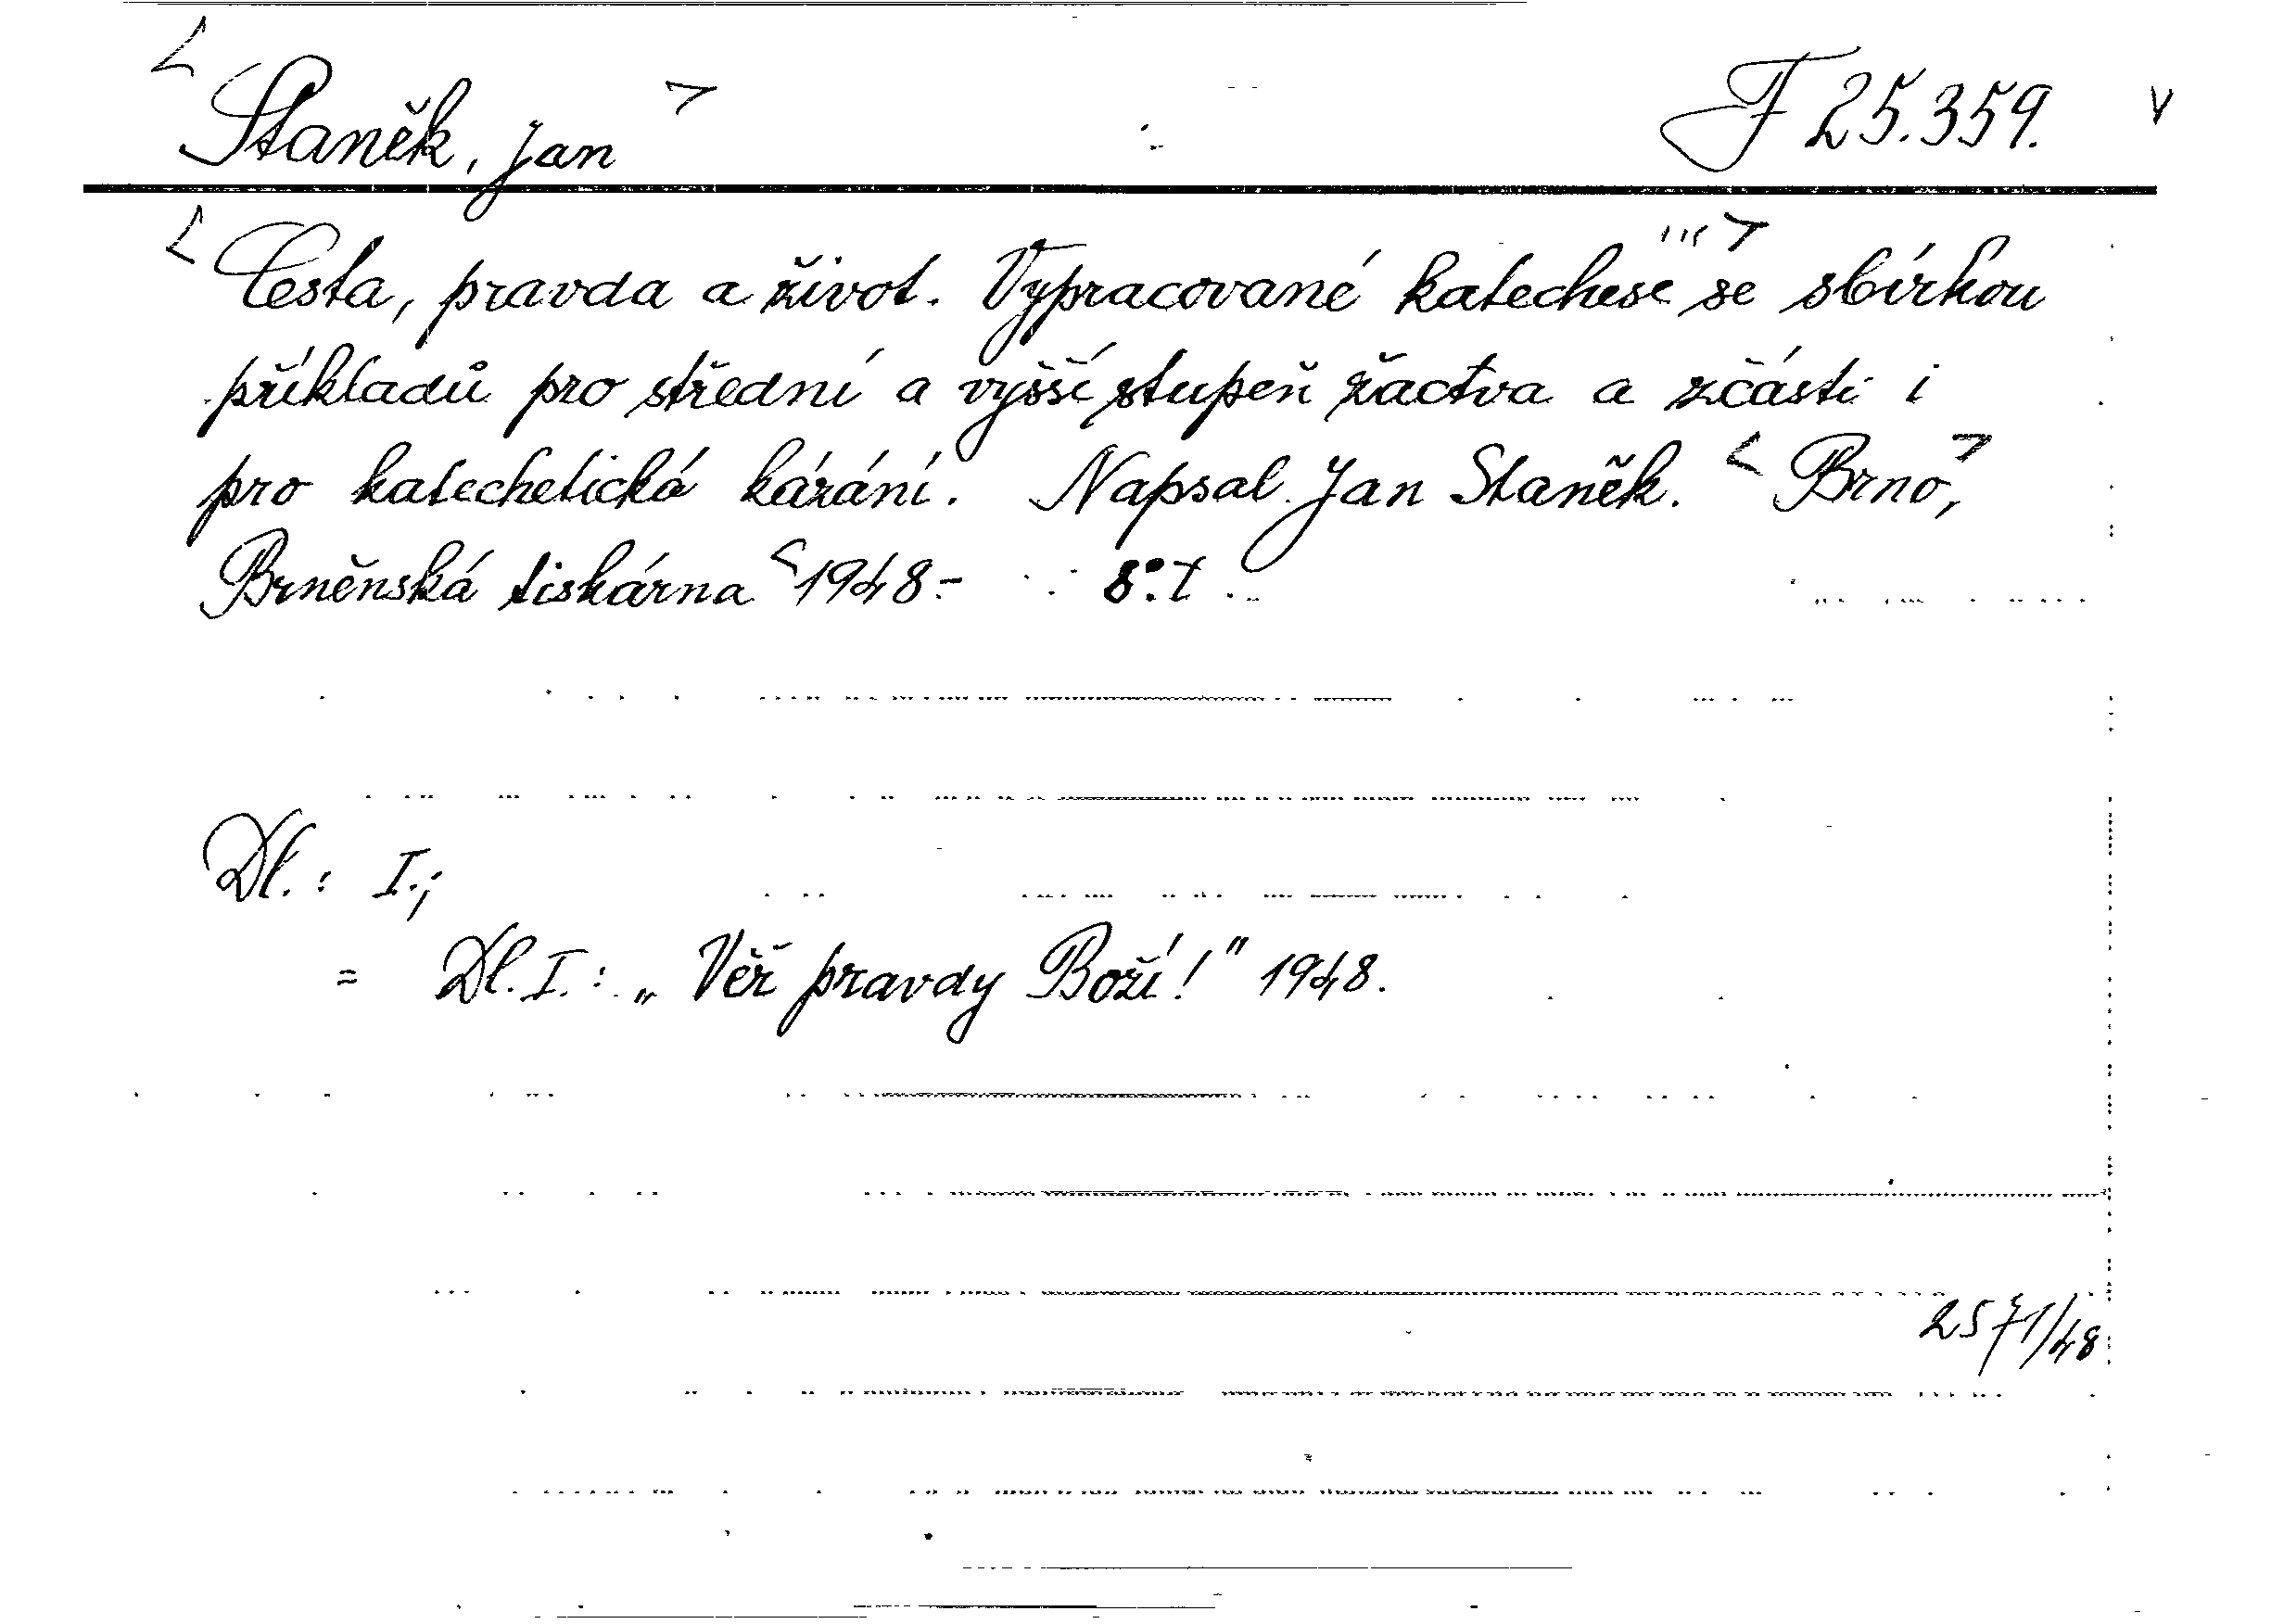 Staněk, Jan F 25.359.
Cesta, pravda a život. Vypracované katechese se sbírkou
příkladů pro střední a vyšší stupeň žactva a zčásti i
pro katechetická kázání. Napsal Jan Staněk. Brno,
Brněnská tiskárna 1948.- 8°.
Dl.: I.;
= Dl. I.: „Věř pravdy Boží!" 1948.
2571/48